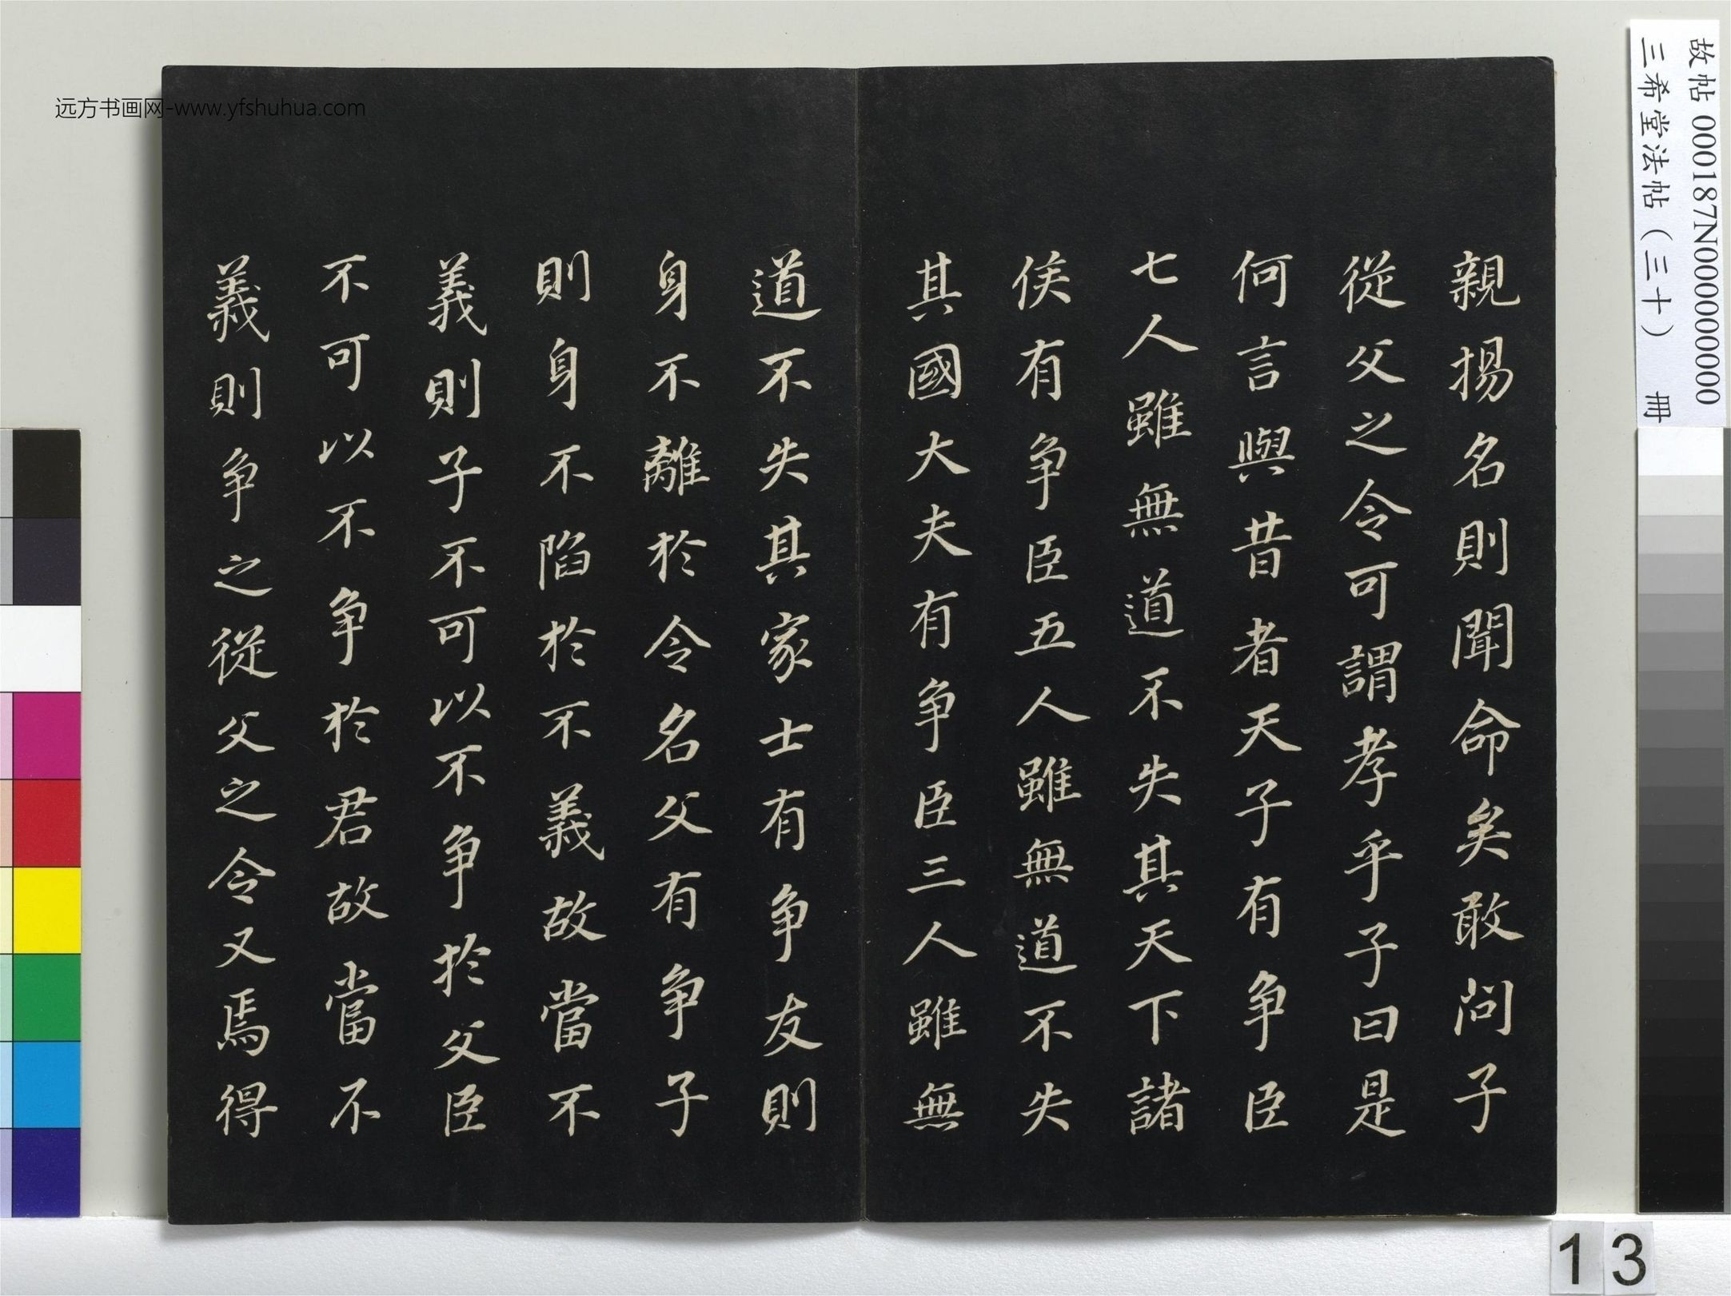 親揚名則聞命矣敢問子
從父之令可謂孝乎子曰是
何言與昔者天子有争臣
七人雖無道不失其天下諸
侯有争臣五人雖無道不失
其國大夫有争臣三人雖無
道不失其家士有争友則
身不離於令名父有争子
則身不陷於不義故當不
義則子不可以不争於父臣
不可以不争於君故當不
義則争之從父之令又焉得
远方书画网-www.yfshuhua.com
故帖 000187N000000000
三希堂法帖（三十） 冊
13